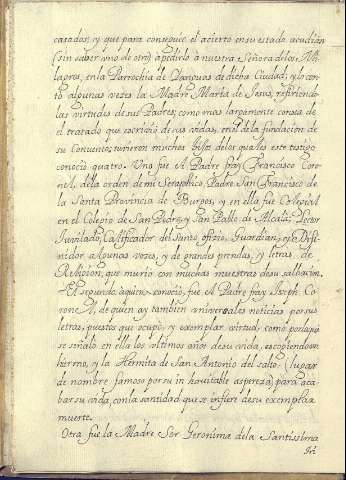 casados, y que para conseguir el acierto en su estado acudian
(sin saber uno de otro) apedirlo à nuestra Señora de los Mi-
lagros, en la Parrochia de Managuas de dicha Ciudad; y lo con-
tò algunas vezes la Madre Maria de Jesus, refiriendo
las virtudes de sus Padres; como mas largamente consta de
el tratado que escrivio de sus vidas, en el de la fundacion de
su Convento; tuvieron muchos hijos de los quales este testigo
conocio quatro. Uno fue el Padre fray Francisco Coro-
nel, de la orden de mi Seraphico Padre San Francisco de
la Santa Provincia de Burgos, y en ella fue Colegial
en el Colegio de San Pedro, y San Pablo de Alcala; Lector
Iuvilado, Calificador del Santo officio, Guardian, y Difi-
nidor algunas vezes, y de grandes prendas, y letras de
Religion, que murio con muchas muestras de su salvacion.
El segundo à quien conocio, fue el Padre fray Joseph Co-
ronel, de quien ay tambien universales noticias por sus
letras, puestos que ocupò, y exemplar virtud; como porque
se señalo en ella los ultimos años de su vida, escogiendo un
hiermo, y la Hermita de San Antonio del salto, (lugar
de nombre famoso por su inhavitable aspereza) para aca-
bar su vida, con la santidad que se infiere de su exemplar
muerte.
Otra fuè la Madre Sor Geronima de la Santissima
Tri